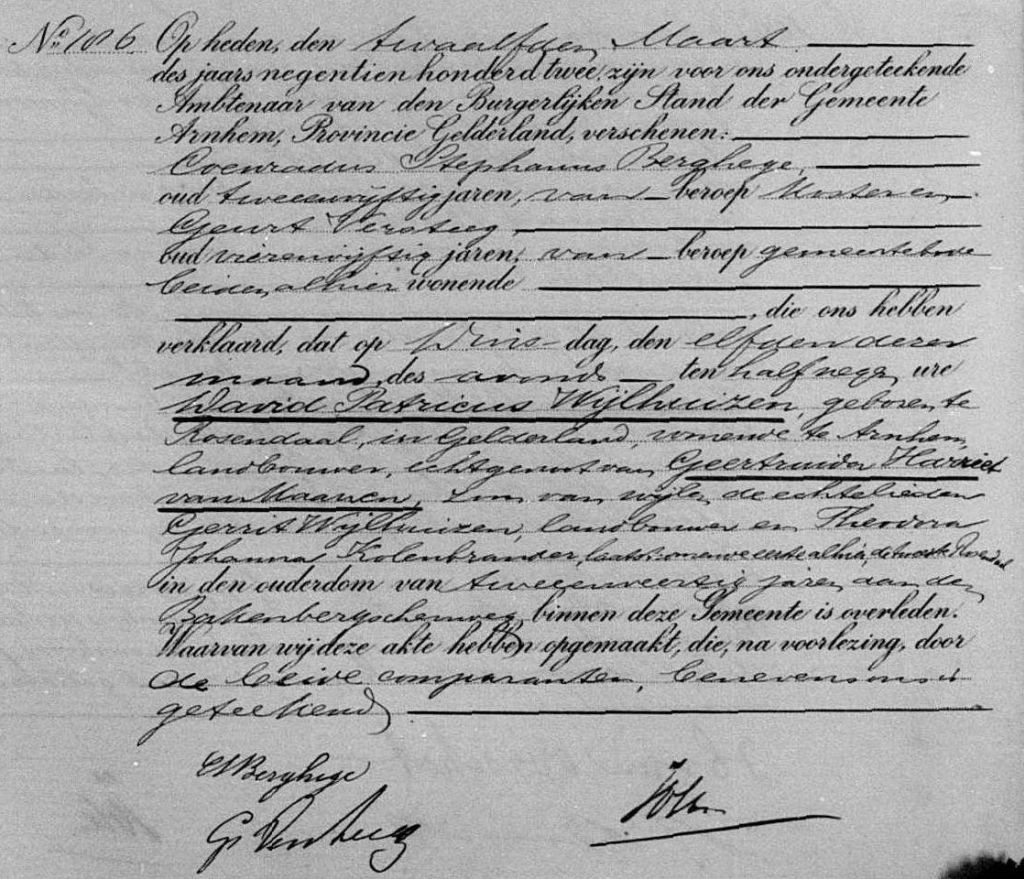 No. 186. Op heden, den twaalfden Maart
des jaars negentien honderd twee, zijn voor ons ondergeteekende
Ambtenaar van den Burgerlijken Stand der Gemeente
Arnhem, Provincie Gelderland, verschenen:
Coenradus Stephanus Berghege,
oud tweeenvijftig jaren, van beroep koster en
Geurt Versteeg,
oud vierenvijftig jaren, van beroep gemeentebode
beiden alhier wonende
, die ons hebben
verklaard, dat op Dins dag, den elfden dezer
maand, des avonds ten half negen ure
David Patricus Wijlhuizen, geboren te
Rosendaal, in Gelderland, wonende te Arnhem,
landbouwer, echtgenoot van Geertruida Harriet
van Maanen, zoon van wijlen de echtelieden
Gerrit Wijlhuizen, landbouwer en Theodora
Johanna Kolenbrander, laatst wonende eerste alhier, de tweede Rosendaal
in den ouderdom van tweeenveertig jaren aan den
Bakenbergscheweg binnen deze Gemeente is overleden.
Waarvan wij deze akte hebben opgemaakt, die, na voorlezing, door
de beide comparanten, benevens ons is
geteekend
CSBerghege
G Versteeg